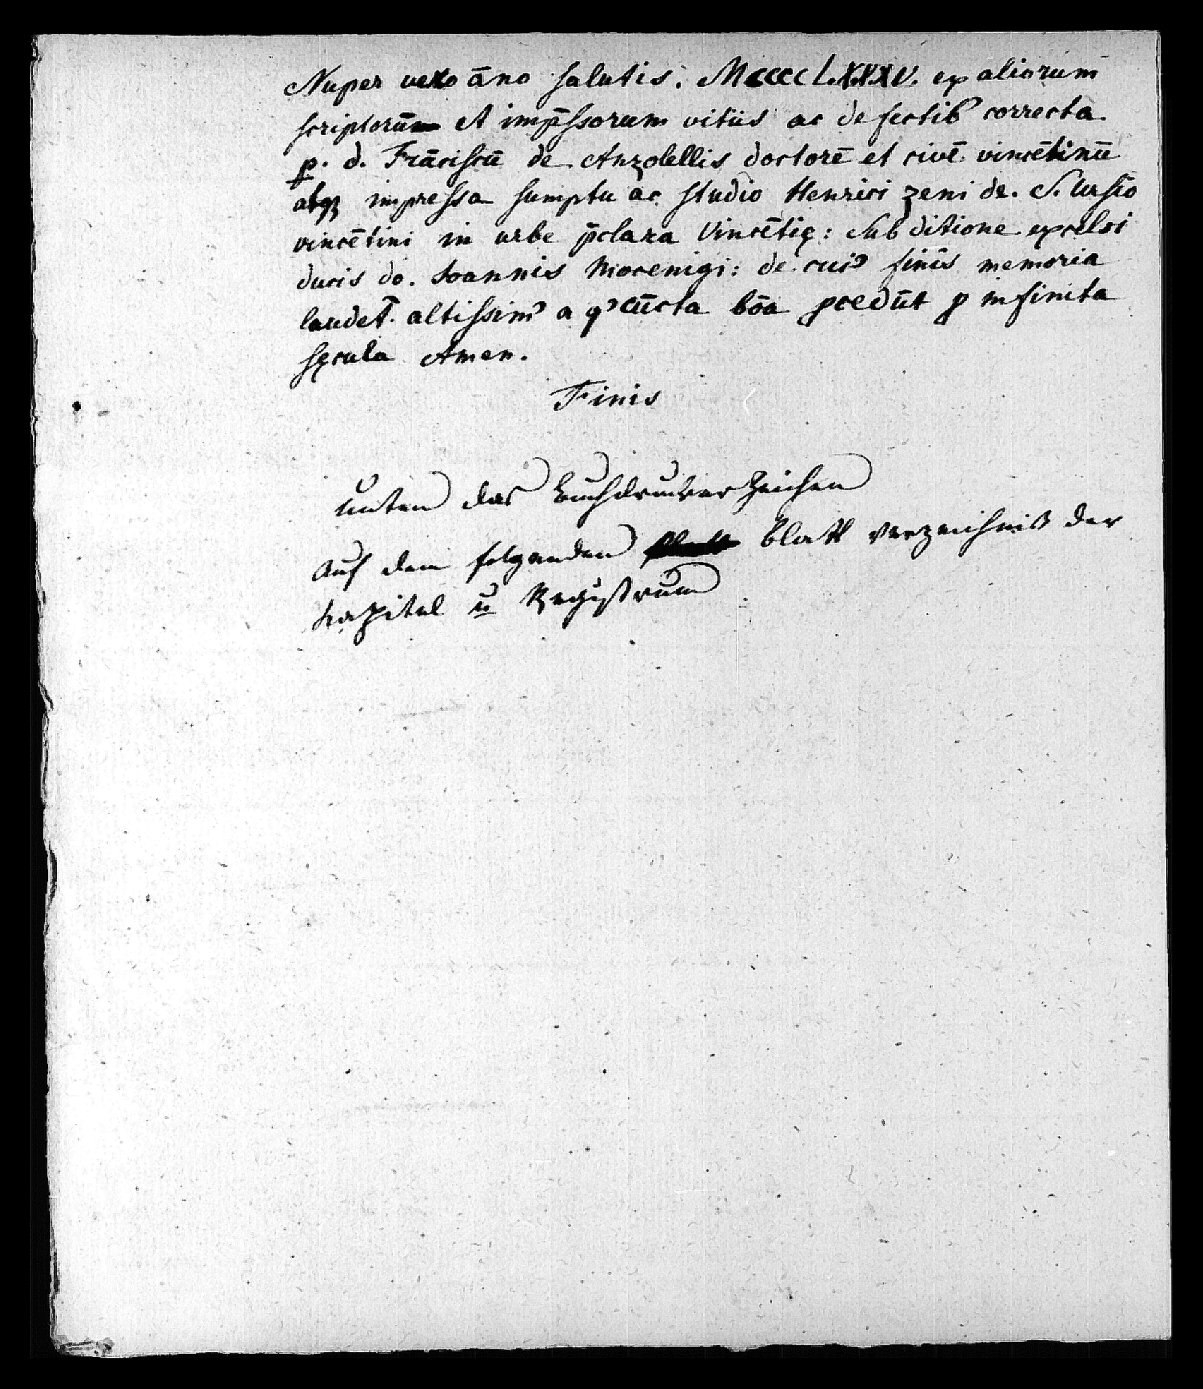 Nuper vero āno salutis. MccccLXXXV. ex aliorum
scriptorū et imp̄ssorum vitiis ac defectibꝰ correcta.
p. d. Frāciscū de Anzolellis doctorē et civē vincētinū
atqꝫ impressa sumptu ac studio Henrici zeni de. S. Ursio
vincētini in urbe p̄clara Vincētię: Sub ditione excelsi
ducis do. Ioannis Mocenigi: de cuiꝰ finis memoria
laudet̄ altissimꝰ a qꝰ cūcta bōa pcedūt p infinita
sęcula Amen.
Finis
unten das Buchdrucker Zeichen
Auf dem folgenden Blatt Verzeichniß der
Kapitel u Registrum